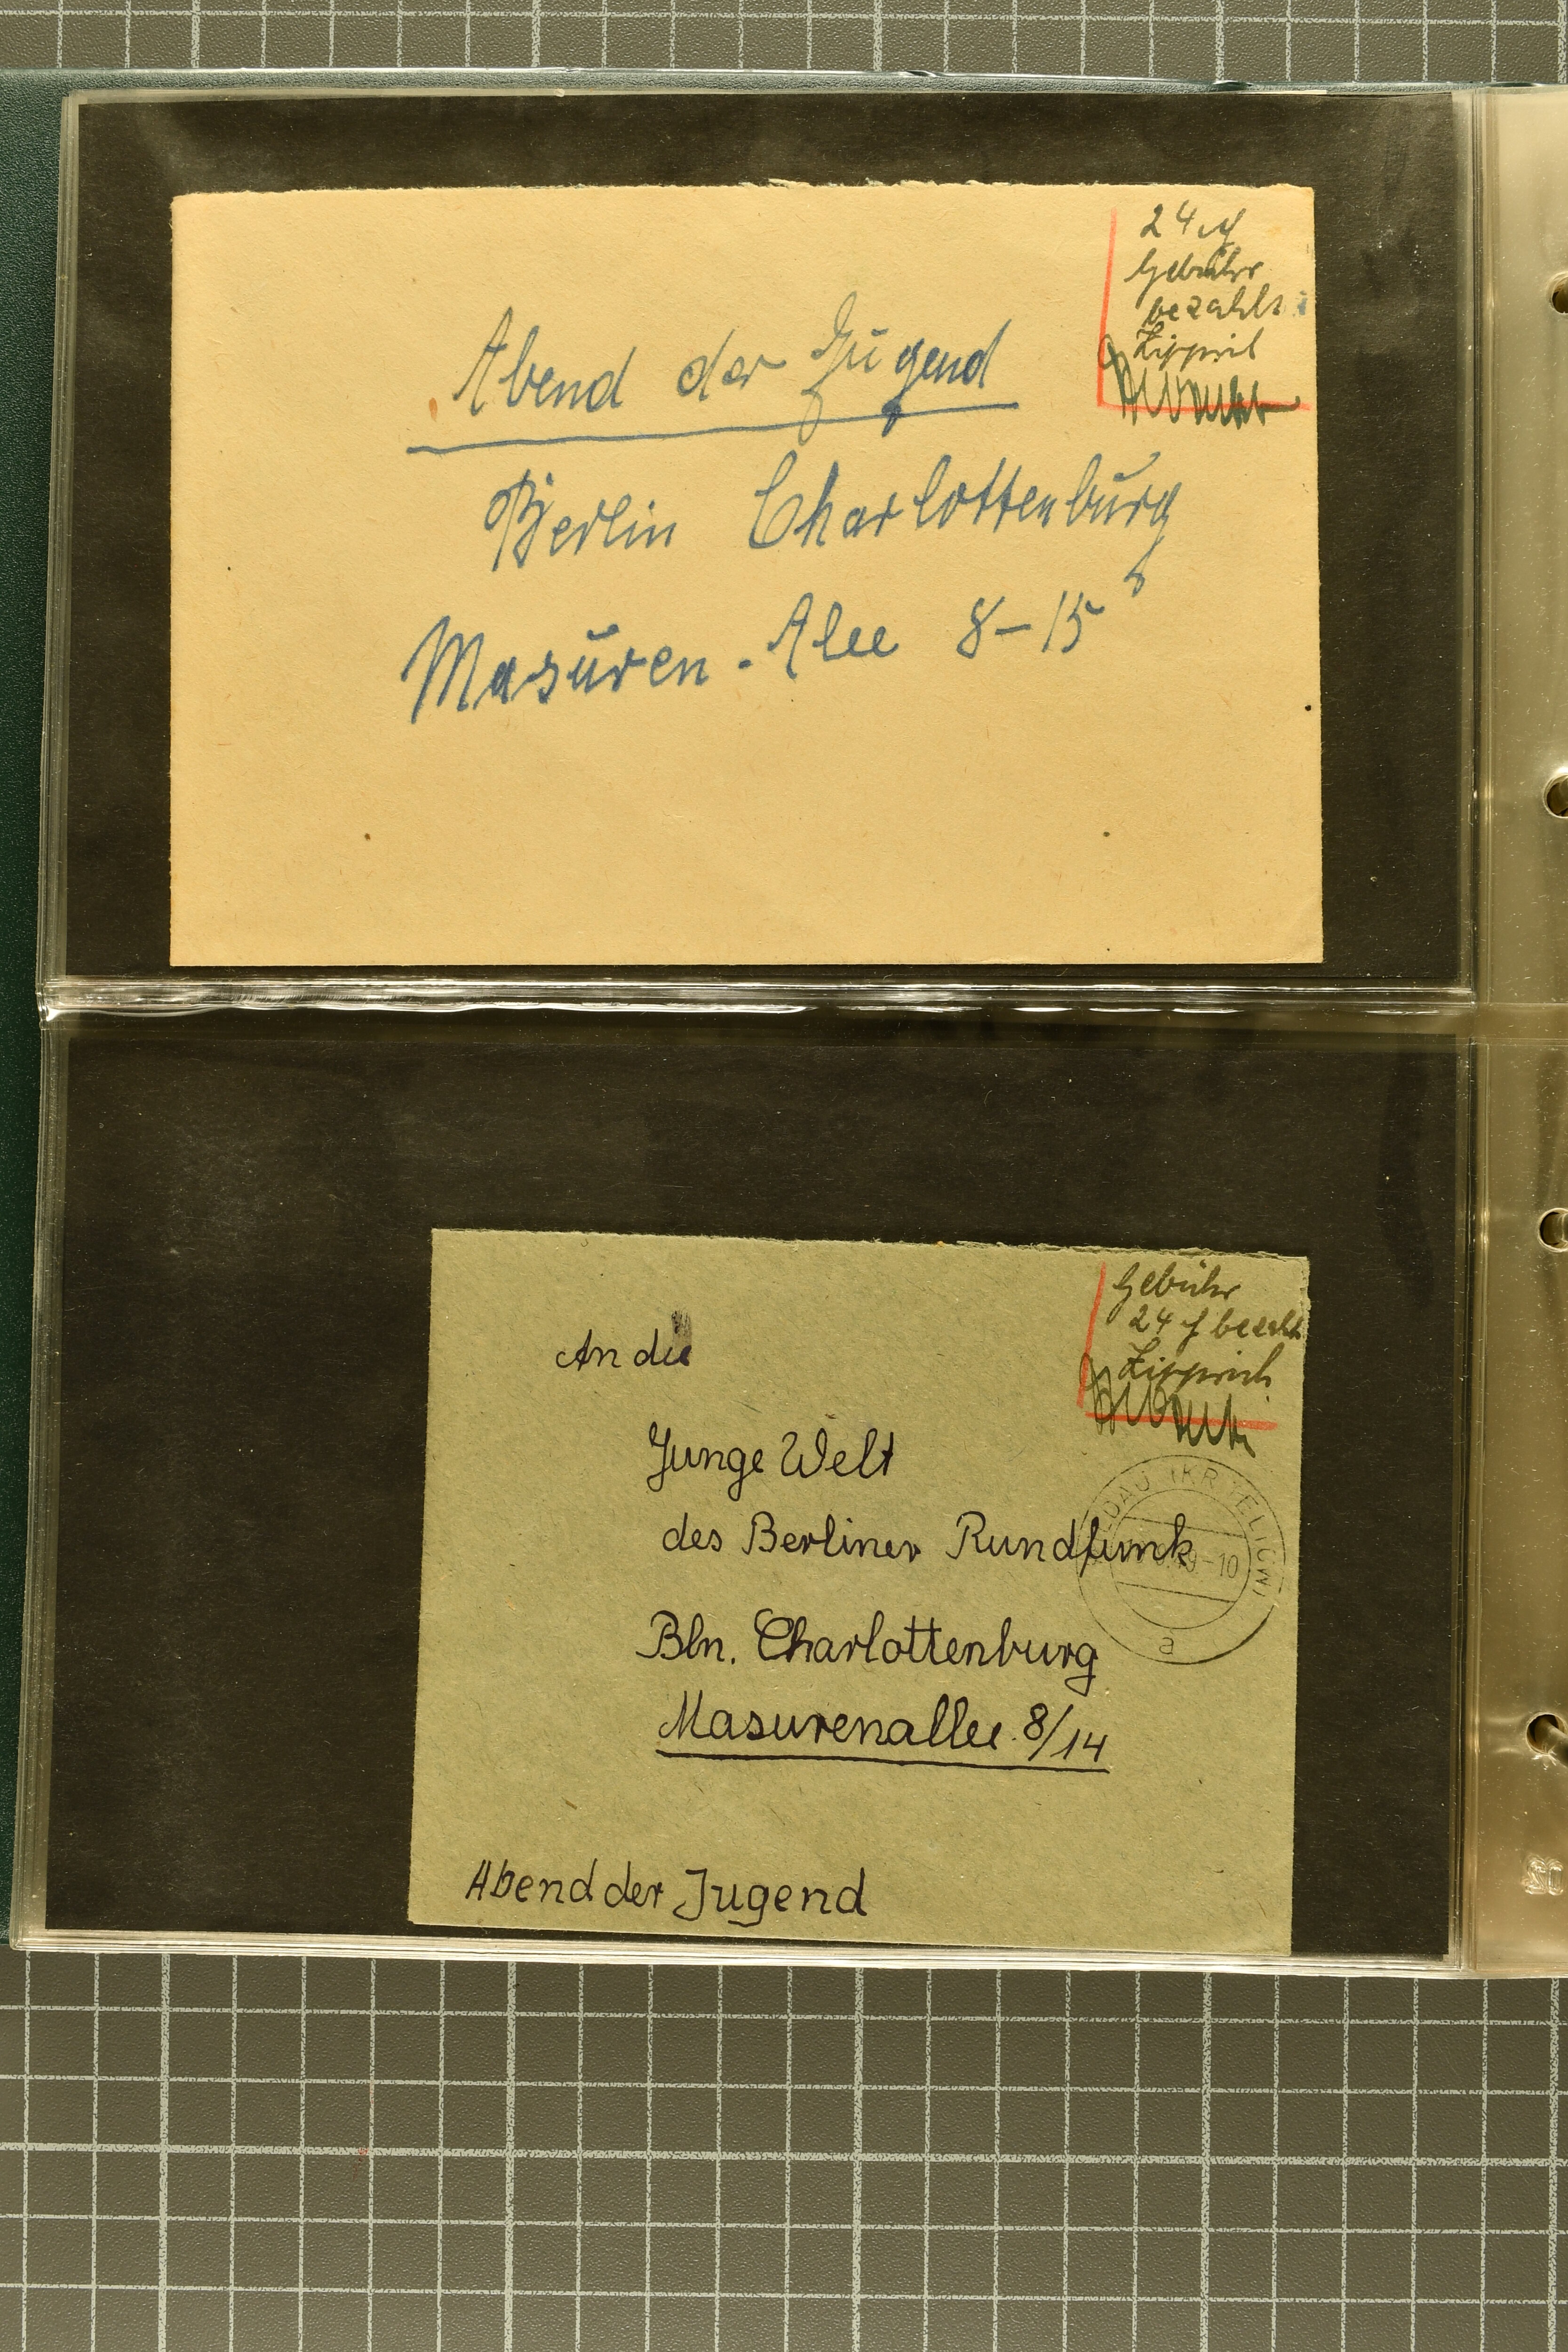 24 Pf
Gebühr
bezahlt
Abend der Jugend
Berlin Charlottenburg
Masuren-Alee 8-15
Gebühr
24 Pf bezahlt
Zipprich
An die
Junge Welt
des Berliner Rundfunk
Bln. Charlottenburg
Masurenallee 8/14
Abend der Jugend
(KR TELTOW)
-10
a